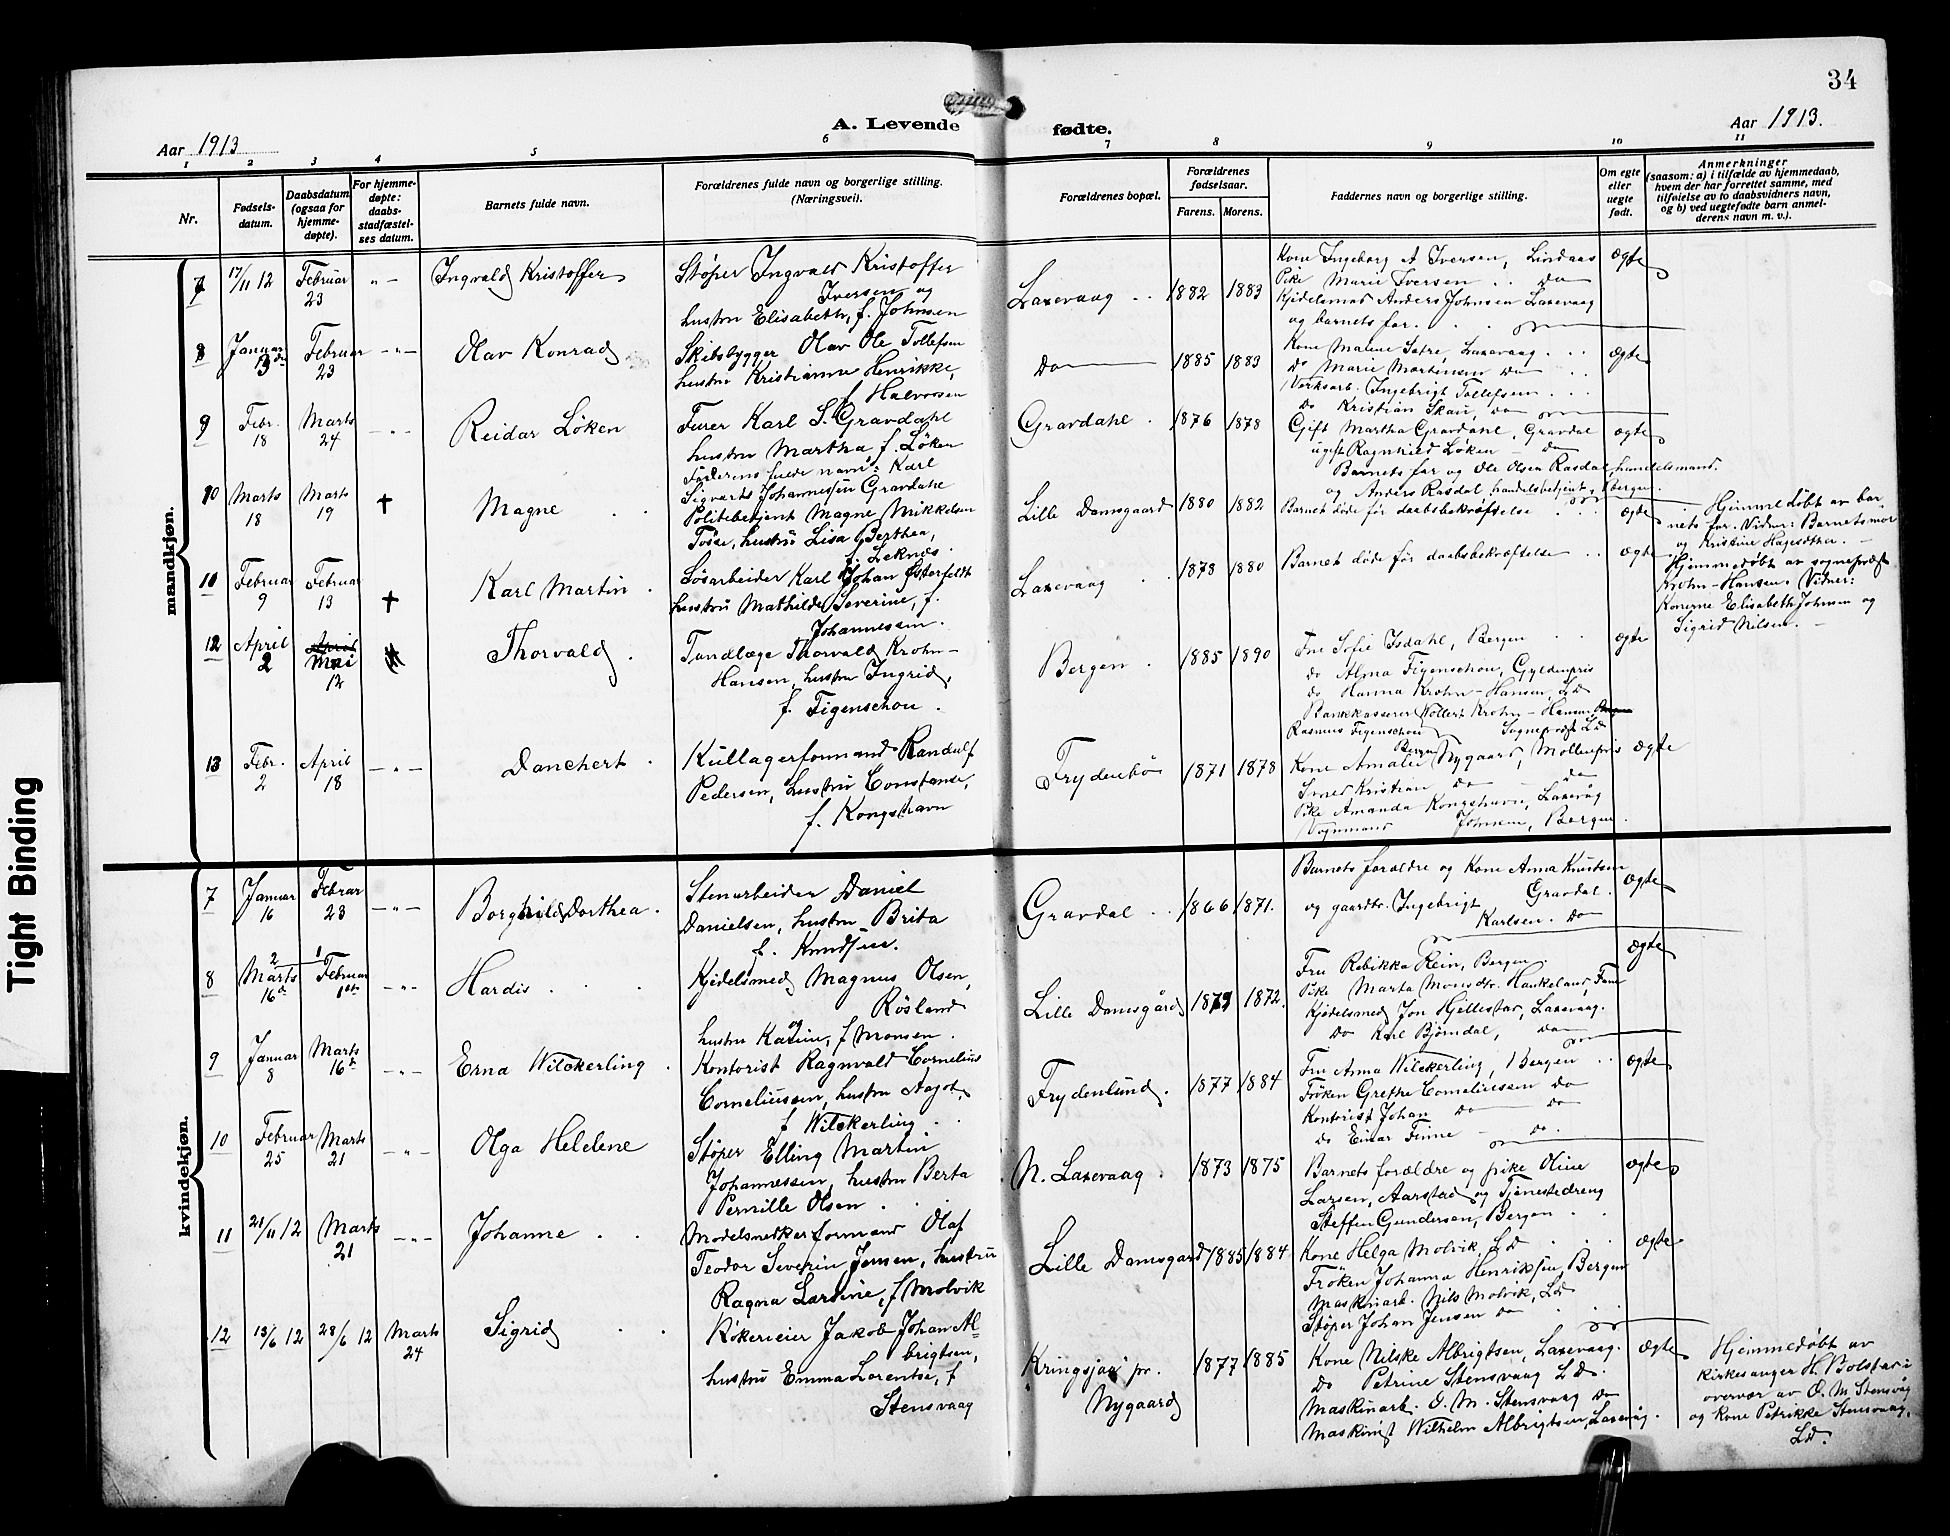 34
A. Levende fødte.
Aar 1913
Aar 1913.
1 2 3 4 5 6 7 8 9 10 11
Nr.
Fødsels-
datum.
Daabsdatum
(ogsaa for
hjemme-
døpte).
For hjemme-
døpte:
daabs-
stadfæstel-
ses datum.
Barnets fulde navn.
Forældrenes fulde navn og borgerlige stilling.
(Næringsvei).
Forældrenes bopæl.
Forældrenes
fødselsaar.
Farens. Morens.
Faddernes navn og borgerlige stilling.
Om egte
eller
uegte
født.
Anmerkninger
(saasom: a) i tilfælde av hjemmedaab,
hvem der har forrettet samme, med
tilføielse av to daabsvidners navn,
og b) ved uegtefødte barn anmel-
derens navn m. v.).
mandkjøn.
7 17/11 12 Februar 23 -"- Ingvald Kristoffer
Støper Ingvald Kristoffer
Iversen og
hustru Elisabeth, f. Johnsen
Laxevaag 1882 1883
Kone Ingeborg A Iversen, Lindaas
Pike Marie Iversen .. Do
Kjedelsmed Anders Johnsen Laxevaag
og barnets far.
ægte
8 Januar 13de Februar 23 -"- Olav Konrad
Skibsbygger Olav Ole Tollefsen
hustru Kristianna Henrikke,
f Halvorsen
Do 1885 1883
Kone Malene Sætre, Laxevaag
do Marie Martinsen Do
Verksarb. Ingebrigt Tollefsen
Do Kristian Skau, Do
ægte
9 Febr. 18 Marts 24 -"- Reidar Løken
Furer Karl S. Gravdahl
hustru Martha f. Løken
Faderens fulde navn: Karl
Sigvards Johannessen Gravdahl
Gravdahl 1876 1878
Gift Martha Gravdahl, Gravdal
ugift Ragnhild Løken - Do
Barnets far og Ole Olsen Rasdal, handelsmand.
og Anders Rasdal, handelsbetjent, Bergen.
ægte
10 Marts 18 Marts 19 † Magne
Politibetjent Magne Mikkelsen
Tosse, hustru Lisa Berthea,
f. Leknes.
Lille Damsgaard 1880 1882
Barnet døde før daabsbekræftelse
ægte
Hjemmedøbt av bar-
nets far. Vidner: Barnets mor
og Kristine Hagesæther. -
11 Februar 9 Februar 13 † Karl Martin
Løsarbeider Karl Johan Østerfeldt
hustru Mathilde Severine, f.
Johannessen.
Laxevaag 1878 1880
Barnet døde før daabsbekræftelse
ægte
Hjemmedøbt av sogneprest
Krohn-Hansen. Vidner:
Konerne Elisabeth Johnsen og
Sigrid Nilsen. -
12 April 2 April Mai 12 Thorvald
Tandlæge Thorvald Krohn-
Hansen, hustru Ingrid,
f. Figenschou
Bergen 1885 1890
Fru Sofie Isdahl, Bergen
do Alma Figenschou, Gyldenpris
do Hanna Krohn-Hansen, Ld
Bankkasserer Wollert Krohn-Hansen
Rasmus Figenschou Sogneprest Ld
Bergen
ægte
13 Febr. 2 April 18 -"- Danchert
Kullagerformand Randulf
Pedersen, hustru Constanse,
f. Kongshavn
Frydenbø 1871 1878
Kone Amalie Nygaard, Møllenpris
Smed Kristian Do Do
Pike Amanda Kongshavn, Laxevåg
Vognmand Johnsen, Bergen.
ægte
kvindekjøn.
7 Januar 16 Februar 23 -"- Borghild Dorthea.
Stenarbeider Daniel
Danielsen, hustru Brita
f. Knudsen.
Gravdal 1866 1871.
Barnets forældre og Kone Anna Knutsen
Gravdal.
og gaardbr. Ingebrigt
Karlsen. Do
ægte
8 2 Marts 16de 1 Februar 1ste -"- Hardis
Kjedelsmed Magnus Olsen,
Røsland
og
hustru Karine, f Monsen.
Lille Damsgård 1879 1872.
Fru Rebikka Rein, Bergen.
Pike Marta Monsdtr. Haukeland, Fane
Kjedelsmed Jon Hjellestad, Laxevaag.
Do Karl Bjørndal, Do
ægte
9 Januar 8 Marts 16de -"- Erna Wilckerling
Kontorist Ragnvald Cornelius
Corneliussen, hustru Aagot,
f Wilckerling
Frydenlund. 1877 1884
Fru Anna Wilckerling, Bergen
Frøken Grethe Corneliussen Do
Kontorist Johan Do Do
Do Einar Finne - Do.
ægte
10 Februar 25 Marts 21 -"- Olga Helelene
Støper Elling Martin
Johannessen, hustru Berta
Pernille Olsen
N. Laxevaag 1873 1875
Barnets forældre og pike Oline
Larsen, Aarstad og Tjenestedreng
Steffen Gundersen, Bergen
ægte
11 21/11 12 Marts 21 -"- Johanne
Modelsnedkerformand Olaf
Teodor Severin Jensen, hustru
Ragna Lasine, f Molvik
Lille Damsgard 1885 1884
Kone Helga Molvik, Ld
Frøken Johanna Henriksen, Bergen
Maskinarb. Nils Molvik, Ld
Støper Johan Jensen Do
ægte
12 13/6 12 28/6 12 Marts 24 Sigrid
Røkerieier Jakob Johan Al-
brigtsen,
hustru Emma Lorentse, f
Stensvaag
Kringsjaa pr.
Nygaard
1877 1885
Kone Nilske Albrigtsen, Laxevaag.
Do Petrine Stensvaag Ld.
Maskinarb. O. M. Stensvaag Do
Maskinist Wilhelm Albrigtsen, Laxevåg.
ægte
Hjemmedøbt av
kirkesanger H. Bolstad i
overvær av O. M. Stensvåg
og Kone Petrikke Stensvaag,
Ld.
Tight Binding